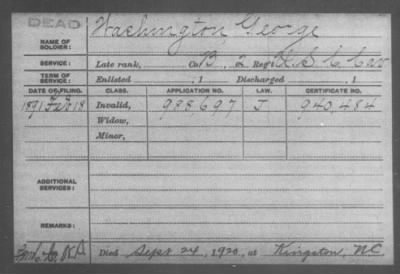 DEAD
NAME OF SOLDIER: Washington George
SERVICE: Late rank, Co. B, 2 Reg't U.S.C. Cav
TERM OF SERVICE: Enlisted , 1 Discharged , 1
DATE OF FILING. CLASS. APPLICATION NO. LAW. CERTIFICATE NO.
1891 Feb 18 Invalid, 988,697 J 940,484
Widow,
Minor,
ADDITIONAL SERVICES:
REMARKS:
Died Sept 24, 1920, at Kingston, NC